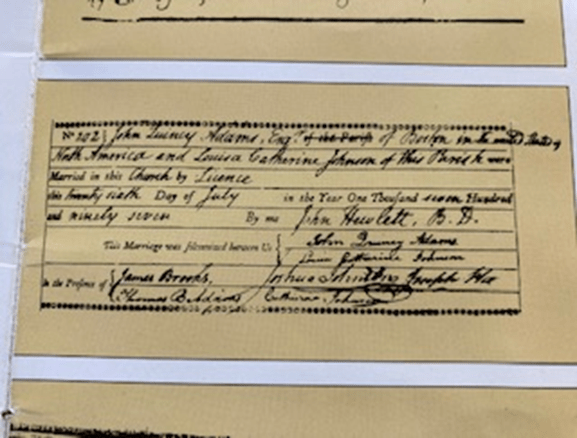 No 202 } John Quincy Adams, Esqr. of the Parish of Boston in the united States of
North America and Louisa Catherine Johnson of this Parish were
Married in this Church by Licence
this twenty sixth Day of July in the Year One Thousand seven Hundred
and ninety seven By me John Hewlett, B. D.
This Marriage was solemnized between Us { John Quincy Adams
Louisa Catherine Johnson
In the Presence of { James Brooks, Joshua Johnson Joseph Hall
Thomas B Adams Catherine Johnson